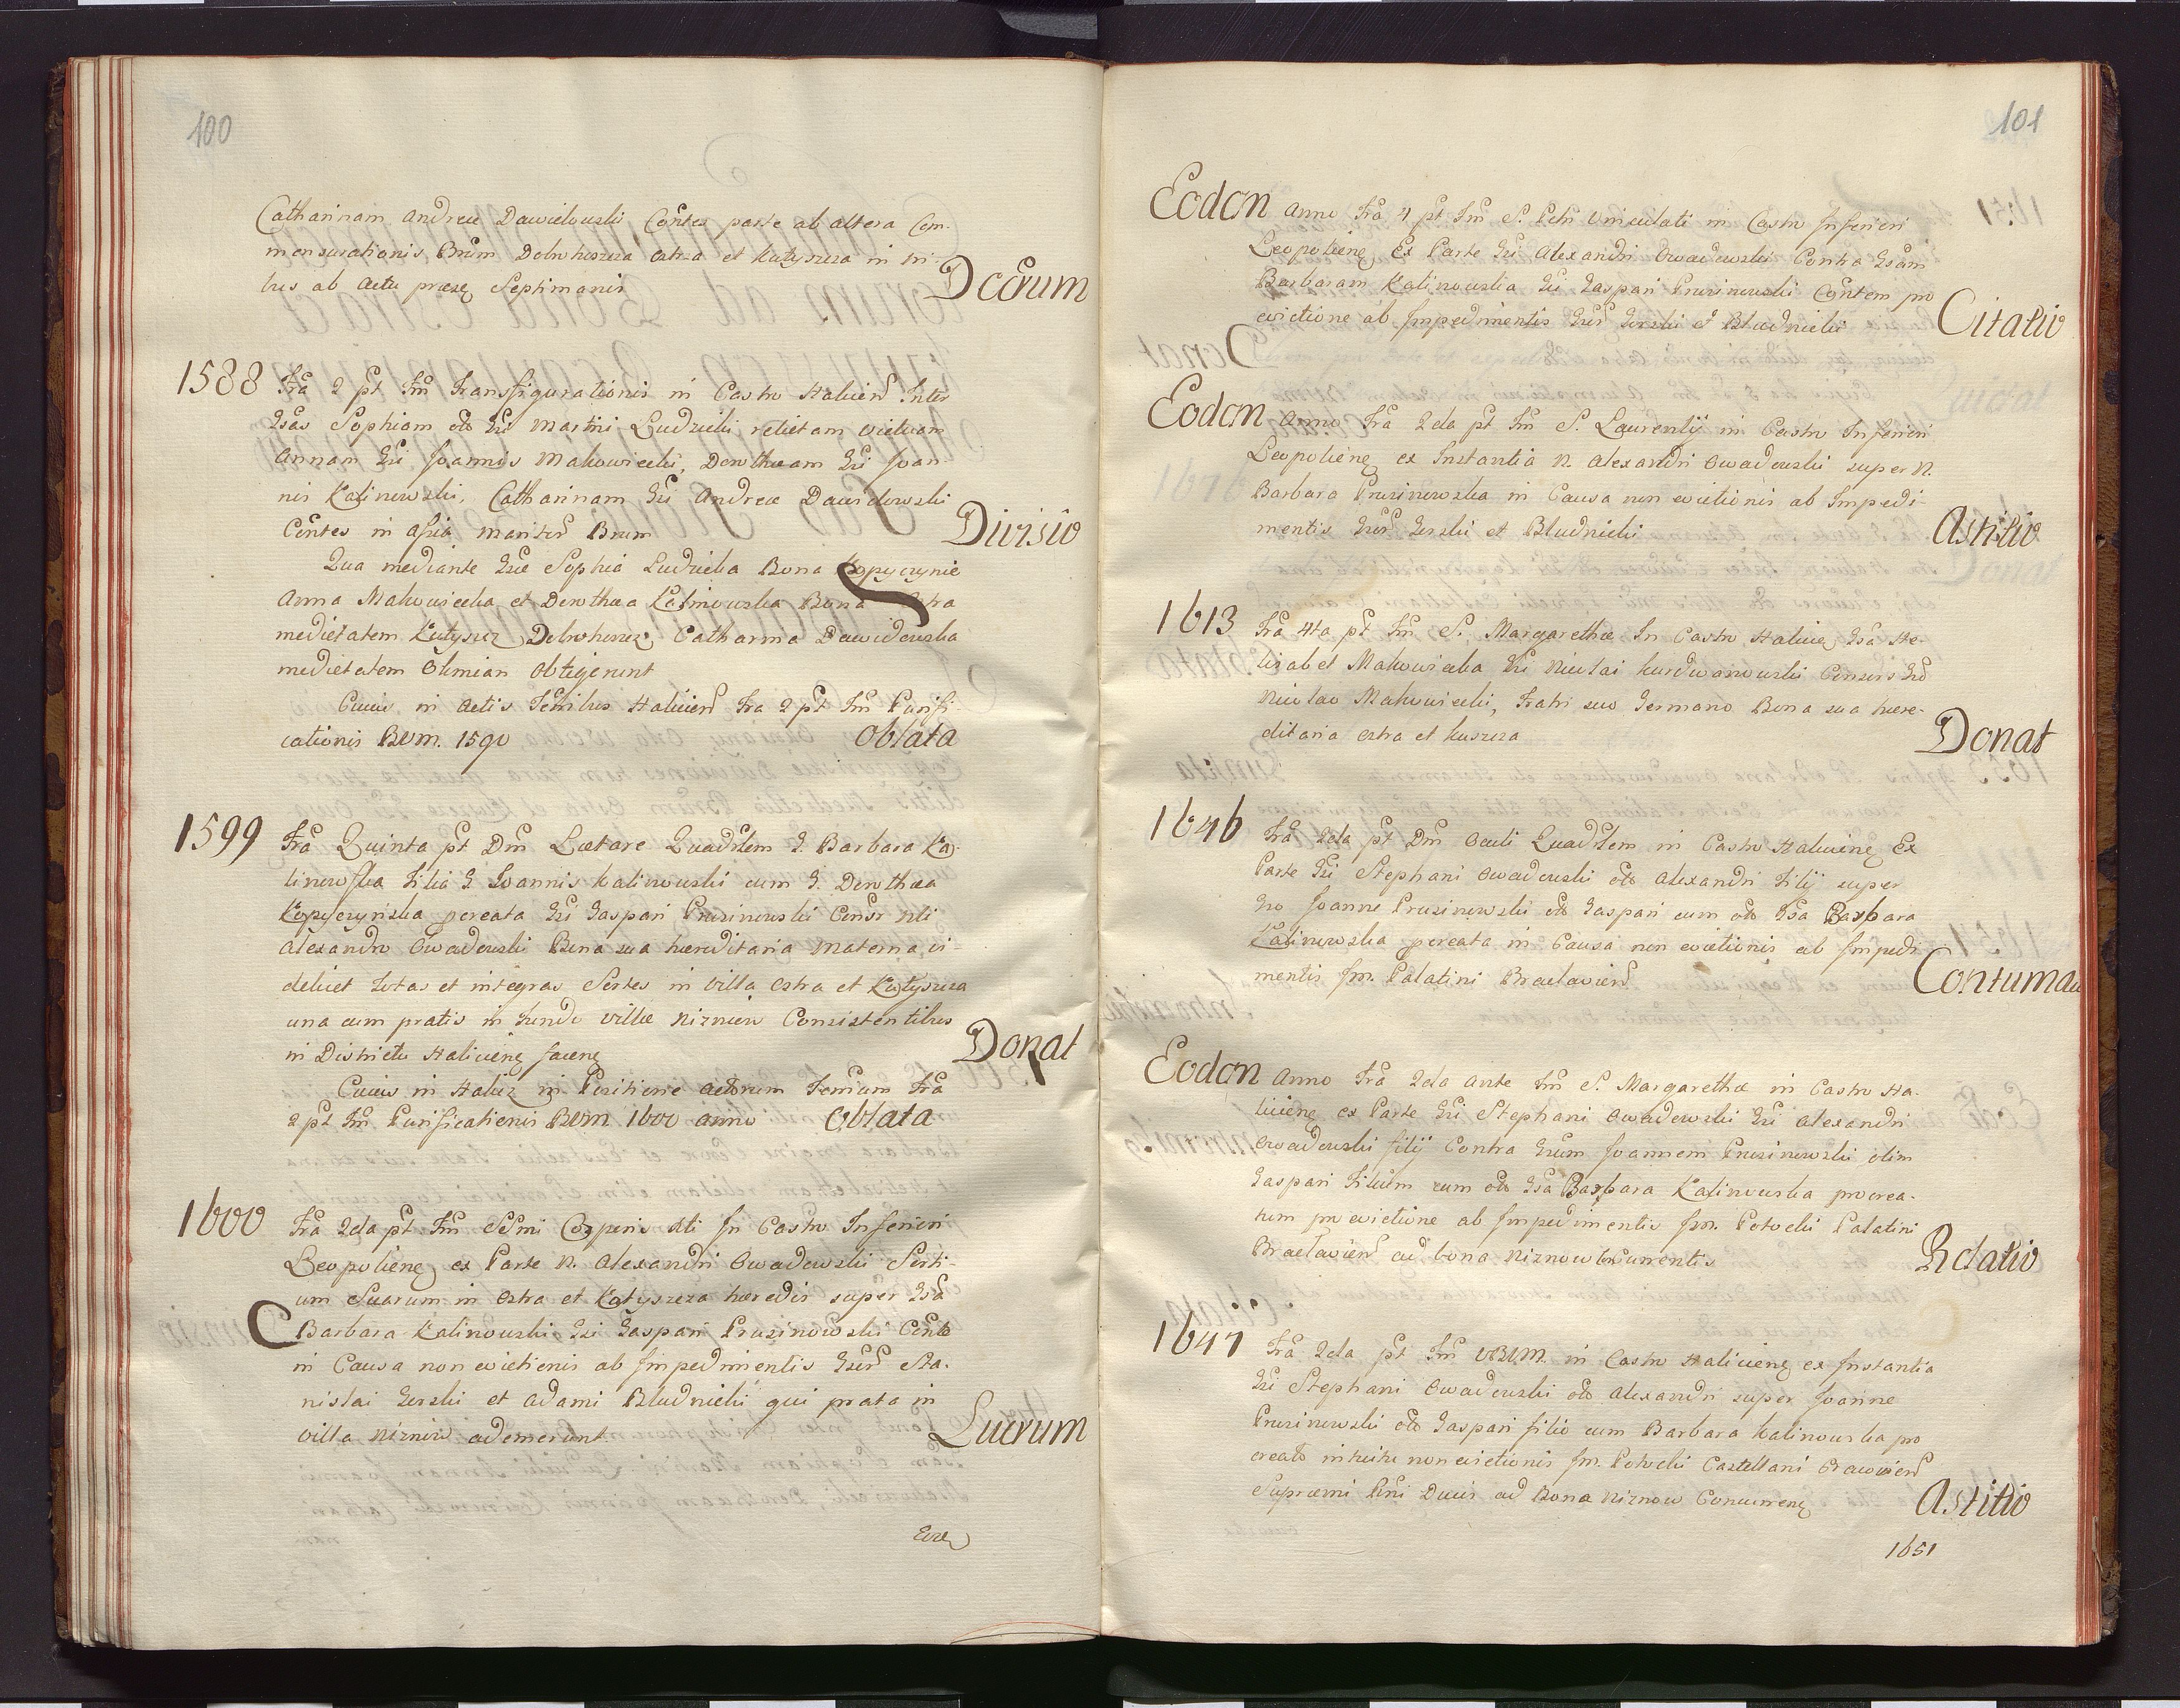 100
Catharinam Andreæ Dawidowski Contes parte ab altera Com-
mensurationis Brum Dolnheszcza Ostra et Kutyszcza in tri-
bus ab Actu præse Septimanis
Dccrum
1588 Fra 2 pt Fm Transfigurationis in Castro Halicien Inter
Gsas Sophiam olo Gsi Martini Ludzicki relictam viduam
Annam Gsi Joannis Makowiecki, Dorotheam Gsi Joan-
nis Kalinowski, Catharinam Gsi Andreæ Dawidowski
Contes in assia maritor Brum
Divisio
Qua mediante Gsæ Sophia Ludzicka Bona Kopyczynie
Anna Makowiecka et Dorothea Kalinowska Bona Ostra
medietatem Kutyszcz, Dolnheszcz, Catharina Dawidowska
medietatem Olimian obtigerunt
Cuius in Actis Terribus Halicien Fra 2 pt Fm Purifi-
cationis BVM. 1590 Oblata
1599 Fra Quinta pt Dm Lætare Quadrlem G. Barbara Ka-
linowska Filia G Joannis Kalinowski cum G. Dorothea
Kopyczynska pcreata Gsi Gaspari Pruszinowski Consr Nli
Alexandro Owadowski Bona sua hæreditaria materna vi-
delicet totas et integras Sortes in Villa Ostra et Kutyszcza
una cum pratis in fundo villæ Nizniow Consistentibus
in Districtu Halicien Jacen
Donat
Cuius in Halicz in Positione actorum Terrium Fra
2 pt Fm Purificationis BVM. 1600 anno Oblata
1600 Fra 2da pt Fm SSmi Corporis Xti In Castro Inferiori
Leopolien ex Parte N. Alexandri Owadowski Sorti-
um Suarum in Ostra et Kutyszcza hæredis super Gsa
Barbara Kalinowski Gsi Gaspari Pruszinowski Conte
in Causa non evictionis ab Impedimentis Gsor Sta-
nislai Gorski et Adami Bludnicki qui prata in
villa Nizniow ademerunt
Lucrum
101
Eodem Anno Fra 4 pt Fm S. Petri Vinculati in Castro Inferiori
Leopolien Ex Parte Gsi Alexandri Owadowski Contra Gsam
Barbaram Kalinowska Gsi Gaspari Pruszinowski Contem pro
evictione ab Impedimentis Gsor Gorski et Bludnicki
Citatio
Eodem Anno Fra 2da pt Fm S. Laurentij in Castro Inferiori
Leopolien ex Instantia N. Alexandri Owadowski super N.
Barbara Pruszinowska in Causa non evictionis ab Impedi-
mentis Gsor Gorski et Bludnicki
Astitio
1613 Fra 4ta pt Fm S. Margarethæ In Castro Halicien Gsa He-
lisabet Makowiecka Gsi Nicolai Kurdwanowski Consors Gso
Nicolao Makowiecki, Fratri suo Germano Bona sua hære-
ditaria Ostra et Kuszcza
Donat
1646 Fra 2da pt Dm Oculi Quadrlem in Castro Halicien Ex
Parte Gsi Stephani Owadowski olo Alexandri Filij super
Gso Joanne Pruszinowski olo Gaspari cum olo Gsa Barbara
Kalinowska pcreata in Causa non evictionis ab Impedi-
mentis Jm. Palatini Braclavien
Contumac
Eodem Anno Fra 2da Ante Fm S. Margarethæ in Castro Ha-
licien ex Parte Gsi Stephani Owadowski Gsi Alexandri
Owadowski filij Contra Gsum Joannem Pruszinowski olim
Gaspari Filium cum olo Gsa Barbara Kalinowska procrea-
tum pro evictione ab Impedimentis Jm. Potocki Palatini
Braclavien ad bona Niznow Concurrentis
Rclatio
1647 Fra 2da pt Fm VBVM. in Castro Halicien ex Instantia
Gsi Stephani Owadowski olo Alexandri super Joanne
Pruszinowski olo Gaspari filio cum Barbara Kalinowska pro
creato intuitu non evictionis Jm. Potocki Castellani Cracovien
Supræmi Pni Ducis ad Bona Niznow Concurren
Astitio
1651